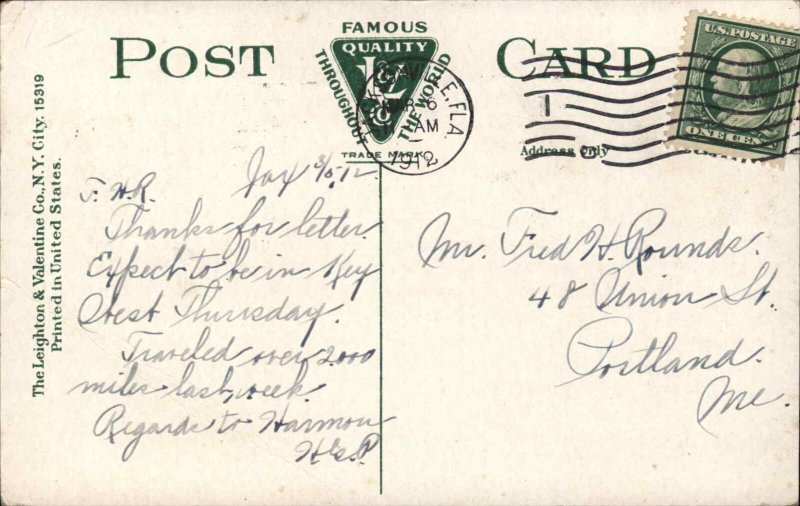 POST CARD
FAMOUS
QUALITY
THROUGHOUT
THE WORLD
L & V Co
TRADE MARK
JACKSONVILLE, FLA.
MAR 6
AM
1912
1
U.S. POSTAGE
ONE CENT
Address Only
The Leighton & Valentine Co., N.Y. City. 15319
Printed in United States.
F. H. R. Jax 3/5/12
Thanks for letter.
Expect to be in Key
West Thursday.
Traveled over 2000
miles last week
Regards to Harmon
Mr. Fred H. Rounds.
48 Union St.
Portland.
Me.